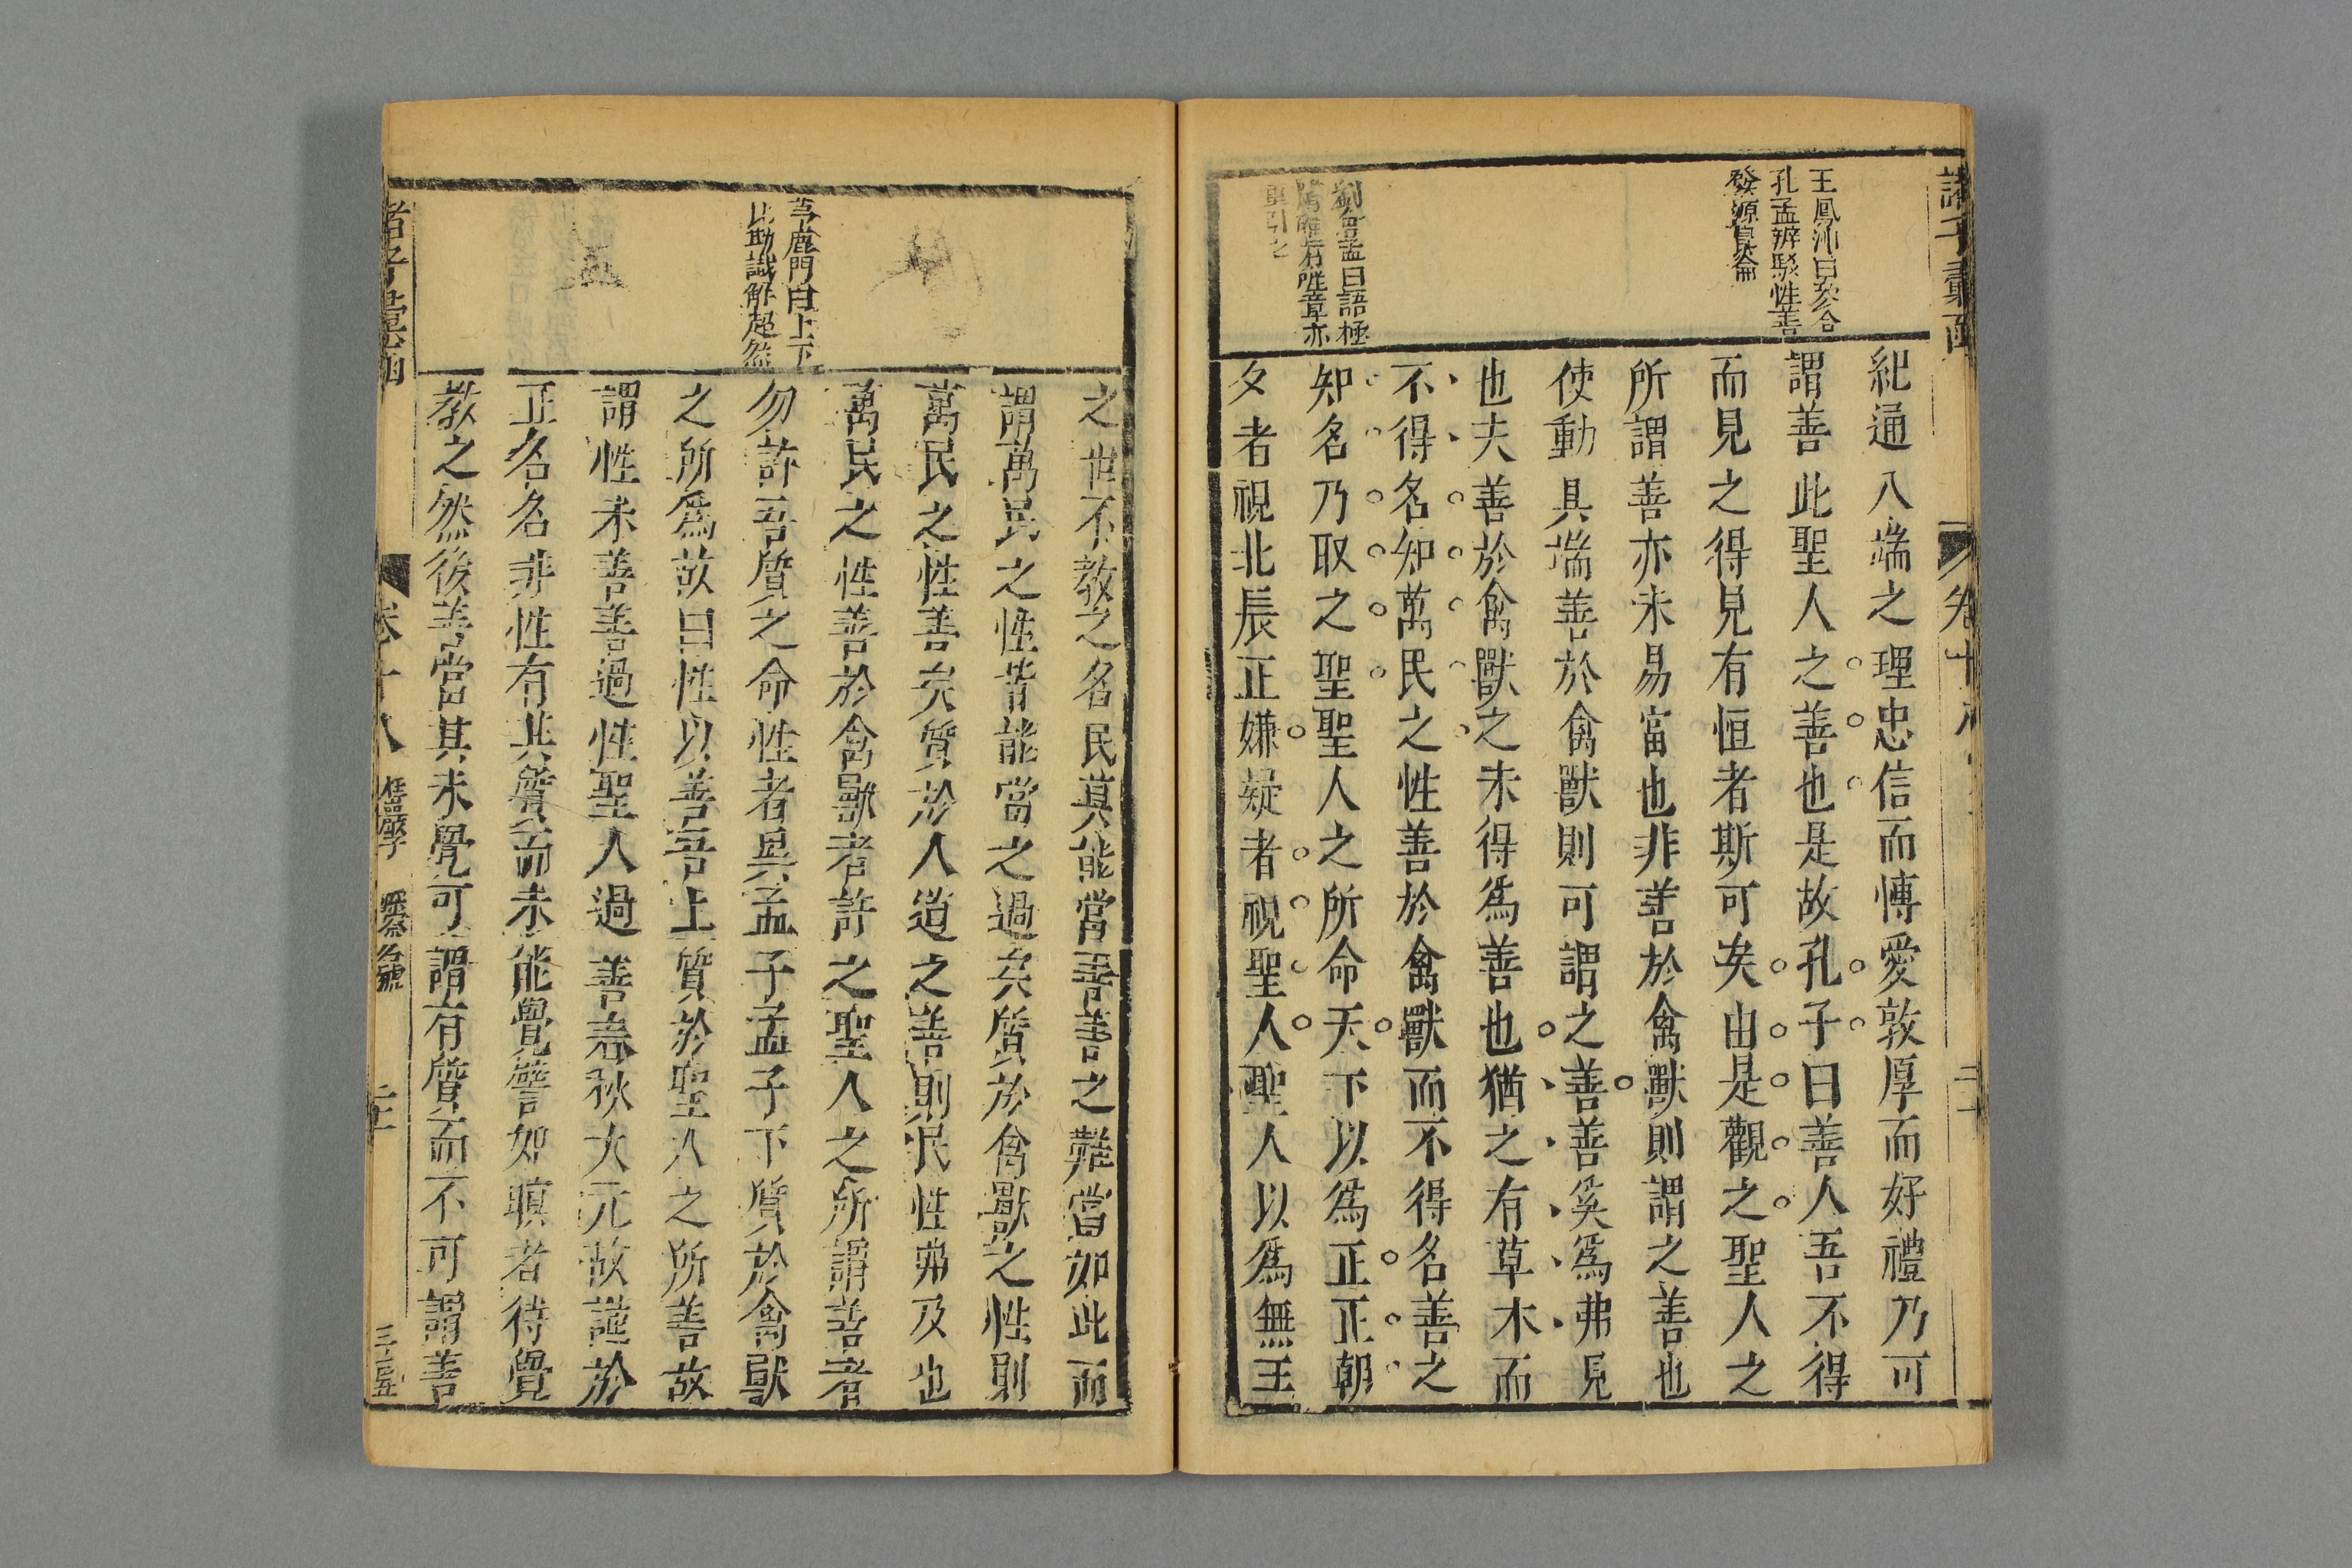 諸子彙函
卷十八
二十
王鳳洲曰發合
孔孟辨駁性善
發源具論
劉會孟曰語極
紀通八端之理忠信而愽愛敦厚而好禮乃可
謂善此聖人之善也是故孔子曰善人吾不得
而見之得見有恒者斯可矣由是觀之聖人之
所謂善亦未易當也非善於禽獸則謂之善也
使動具端善於禽獸則可謂之善善奚爲弗見
也夫善於禽獸之未得爲善也猶之有草木而
不得名知萬民之性善於禽獸而不得名善之
知名乃取之聖聖人之所命天下以爲正正朝
夕者視北辰正嫌疑者視聖人聖人以爲無王
之世不教之名民莫能當善善之難當如此而
謂萬民之性皆能當之過矣質於禽獸之性則
萬民之性善矣質於人道之善則民性弗及也
萬民之性善於禽獸者許之聖人之所謂善者
勿許吾質之命性者異孟子孟子下質於禽獸
之所爲故曰性以善吾上質於聖人之所善故
謂性未善善過性聖人過善春秋大元故謹於
正名名非性有其質而未能覺譬如瞋者待覺
教之然後善當其未覺可謂有質而不可謂善
茅鹿門曰上下
比勘識解超然
諸子彙函
卷十八
深察名號